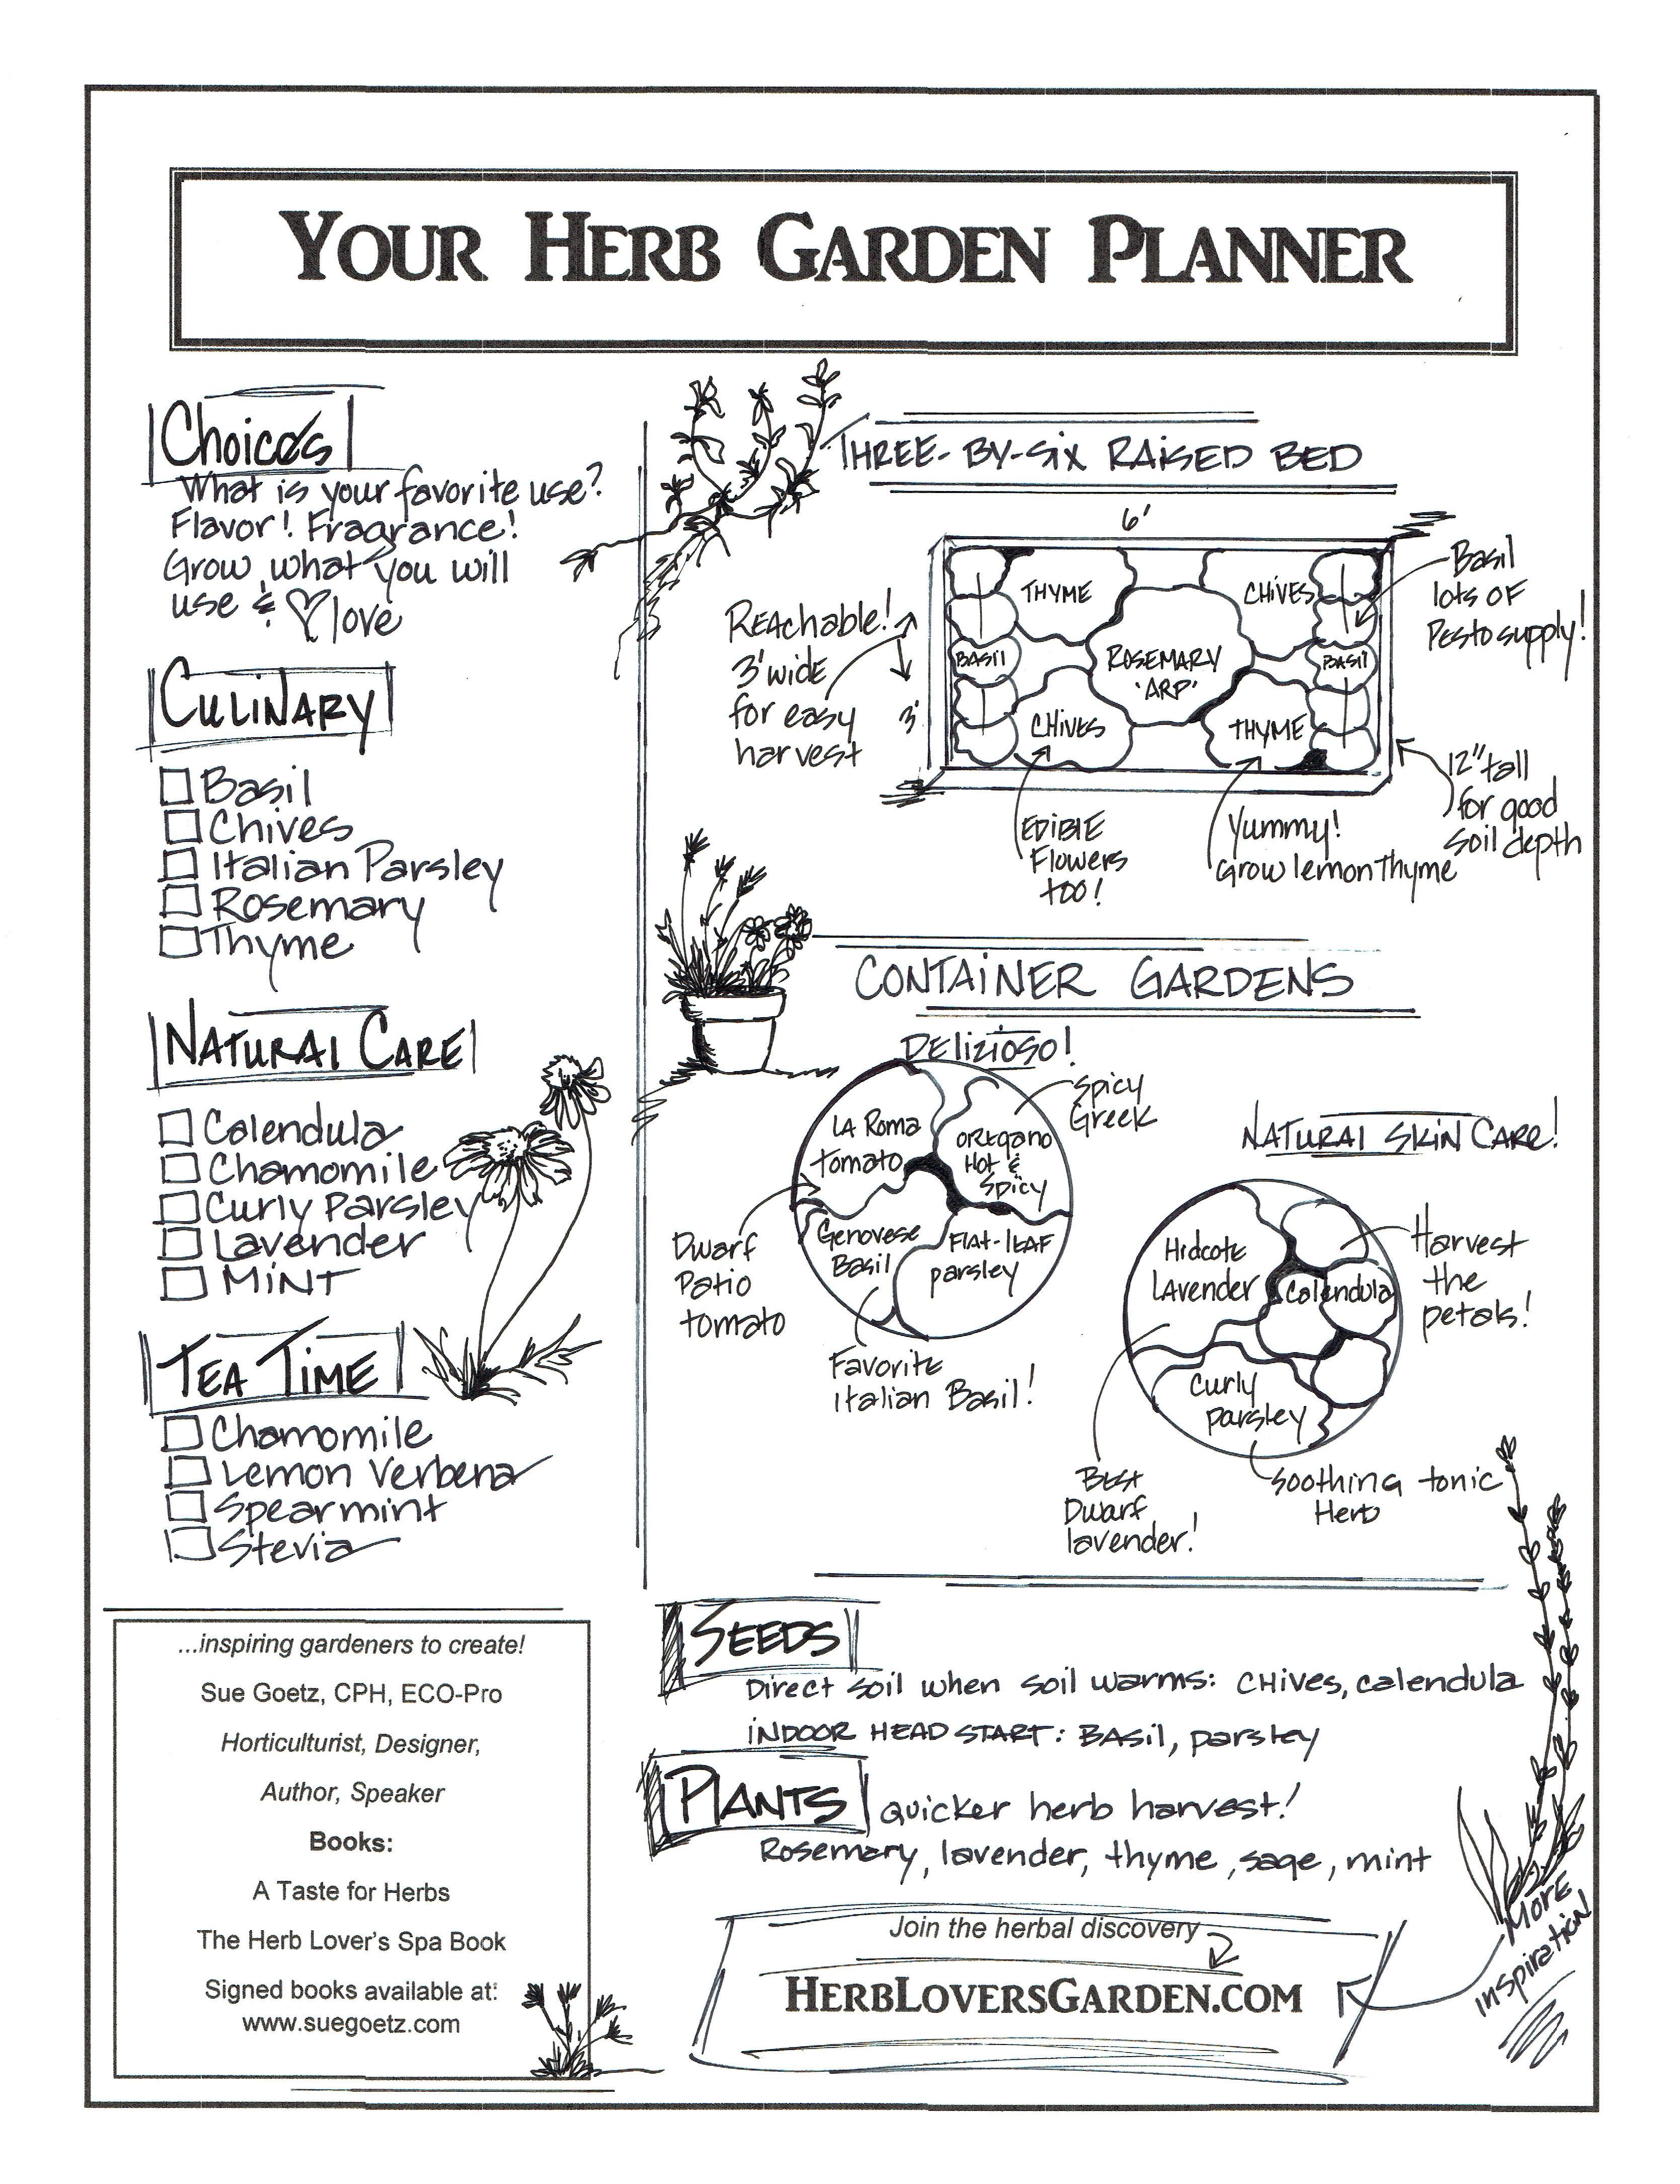 YOUR HERB GARDEN PLANNER
Choices
What is your favorite use?
Flavor! Fragrance!
Grow what you will
use & love
CULINARY
Basil
Chives
Italian Parsley
Rosemary
Thyme
NATURAL CARE
Calendula
Chamomile
Curly Parsley
Lavender
MINT
TEA TIME
Chamomile
Lemon Verbena
Spearmint
Stevia
...inspiring gardeners to create!
Sue Goetz, CPH, ECO-Pro
Horticulturist, Designer,
Author, Speaker
Books:
A Taste for Herbs
The Herb Lover's Spa Book
Signed books available at:
www.suegoetz.com
THREE-BY-SIX RAISED BED
6'
Reachable!
3' wide
for easy
harvest
3'
THYME
CHIVES
BASIL
ROSEMARY
'ARP'
BASIL
CHIVES
THYME
Basil
lots of
Pesto supply!
12" tall
for good
soil depth
EDIBLE
Flowers
too!
Yummy!
Grow lemon Thyme
CONTAINER GARDENS
DELIZIOSO!
LA Roma
tomato
oregano
Hot &
Spicy
Spicy
Greek
Genovese
Basil
Flat-leaf
parsley
Dwarf
Patio
tomato
Favorite
Italian Basil!
NATURAL SKIN CARE!
Hidcote
Lavender
Calendula
Curly
parsley
Harvest
the
petals!
Best
Dwarf
lavender!
Soothing tonic
Herb
SEEDS
Direct soil when soil warms: CHIVES, calendula
INDOOR HEAD START: BASIL, parsley
PLANTS quicker herb harvest!
Rosemary, lavender, thyme, sage, mint
Join the herbal discovery
HERBLOVERSGARDEN.COM
MORE
inspiration